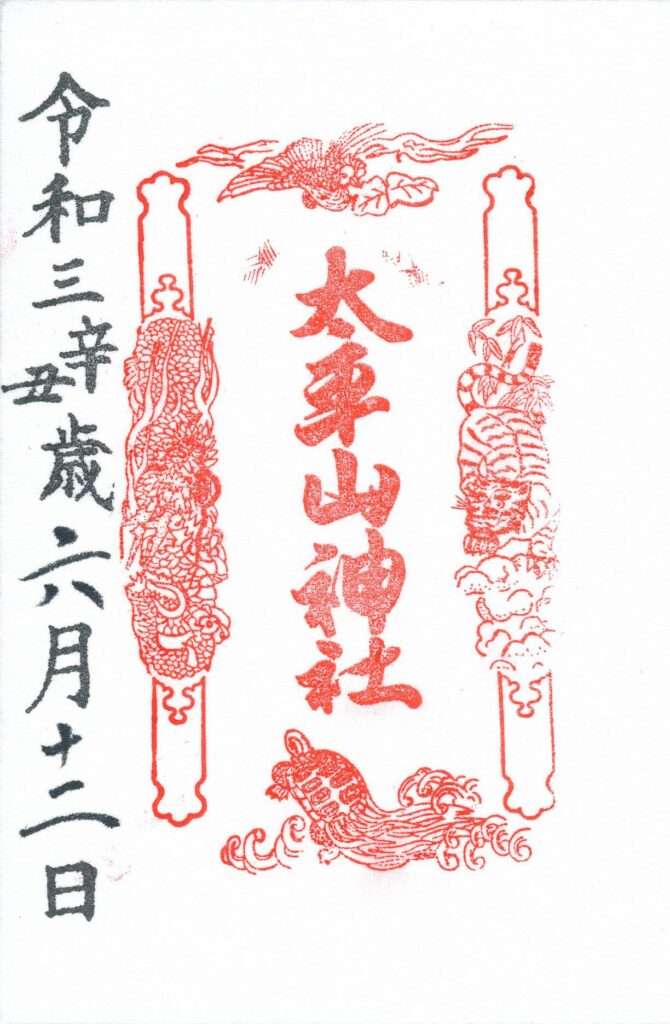 太平山神社
令和三辛丑歳六月十二日